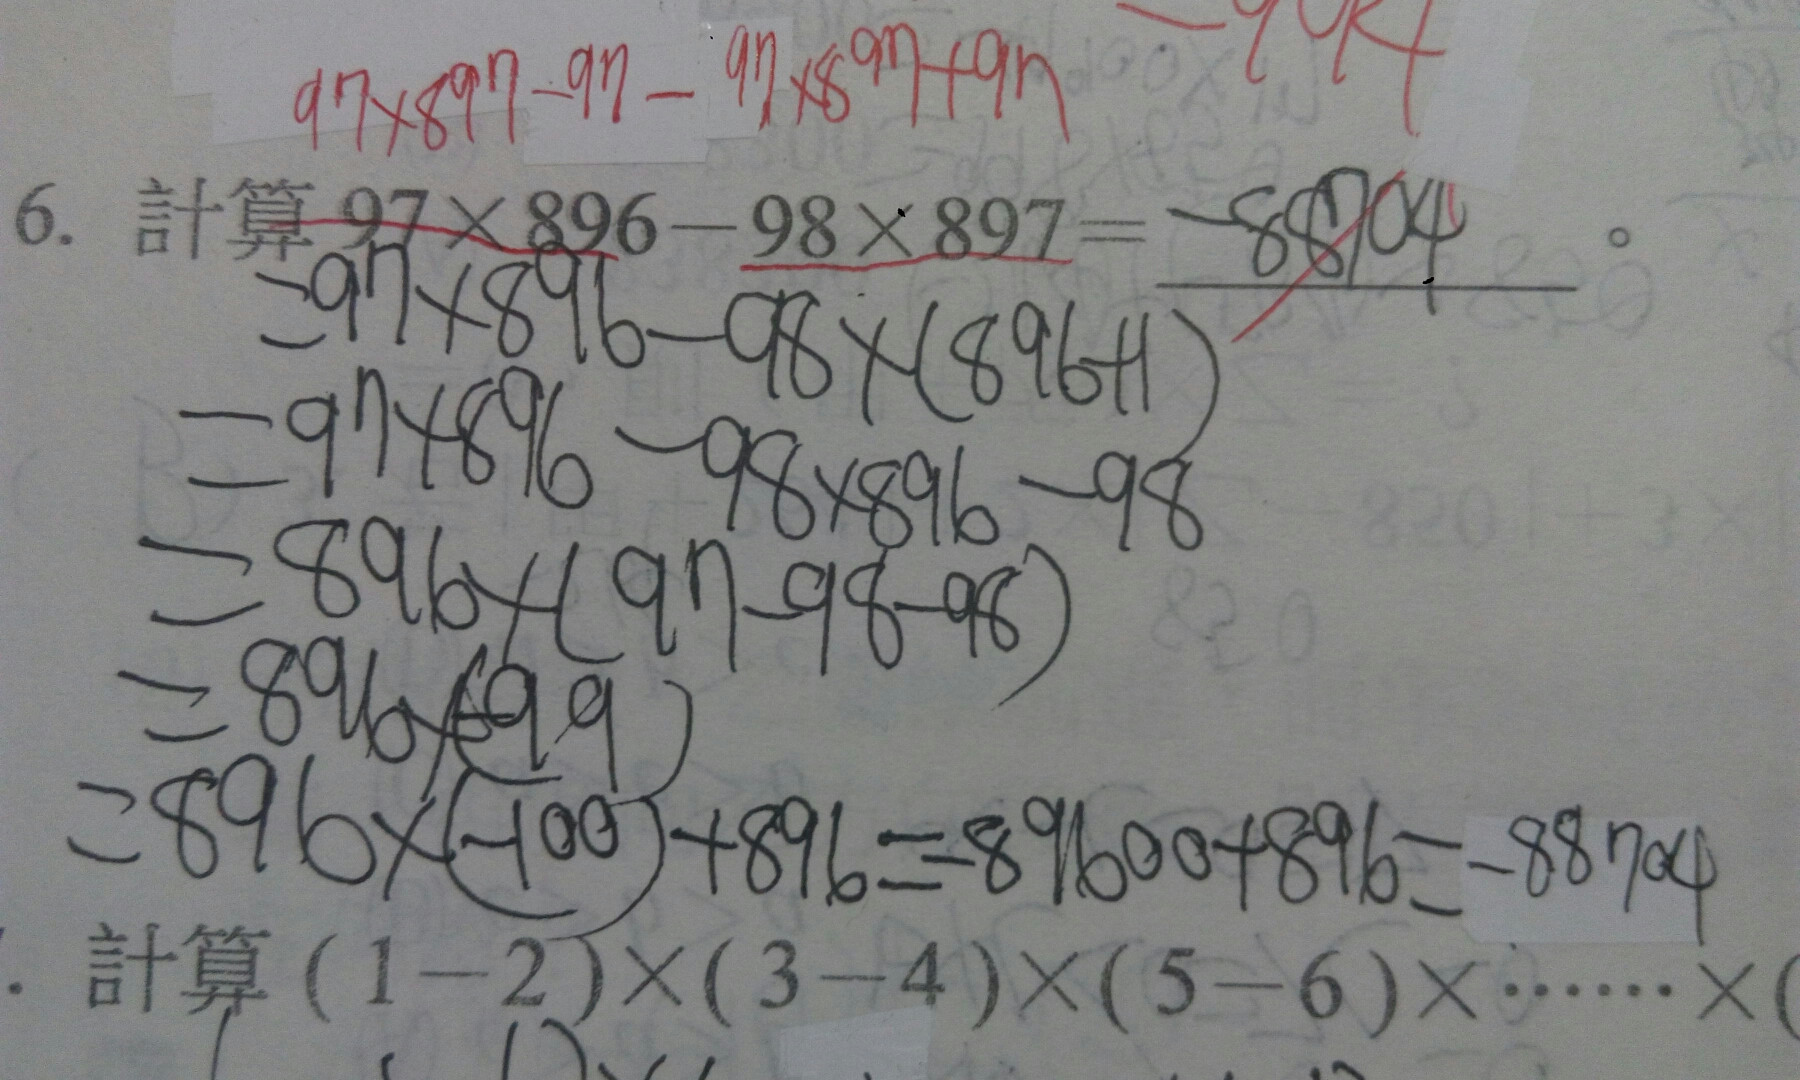 97×897-97-97×897+97
6. 計算 97×896-98×897=-88704。
=97×896-98×(896+1)
=97×896-98×896-98
=896×(97-98-98)
=896×(-99)
=896×(-100)+896=-89600+896=-88704
. 計算(1-2)×(3-4)×(5-6)×⋯⋯×(